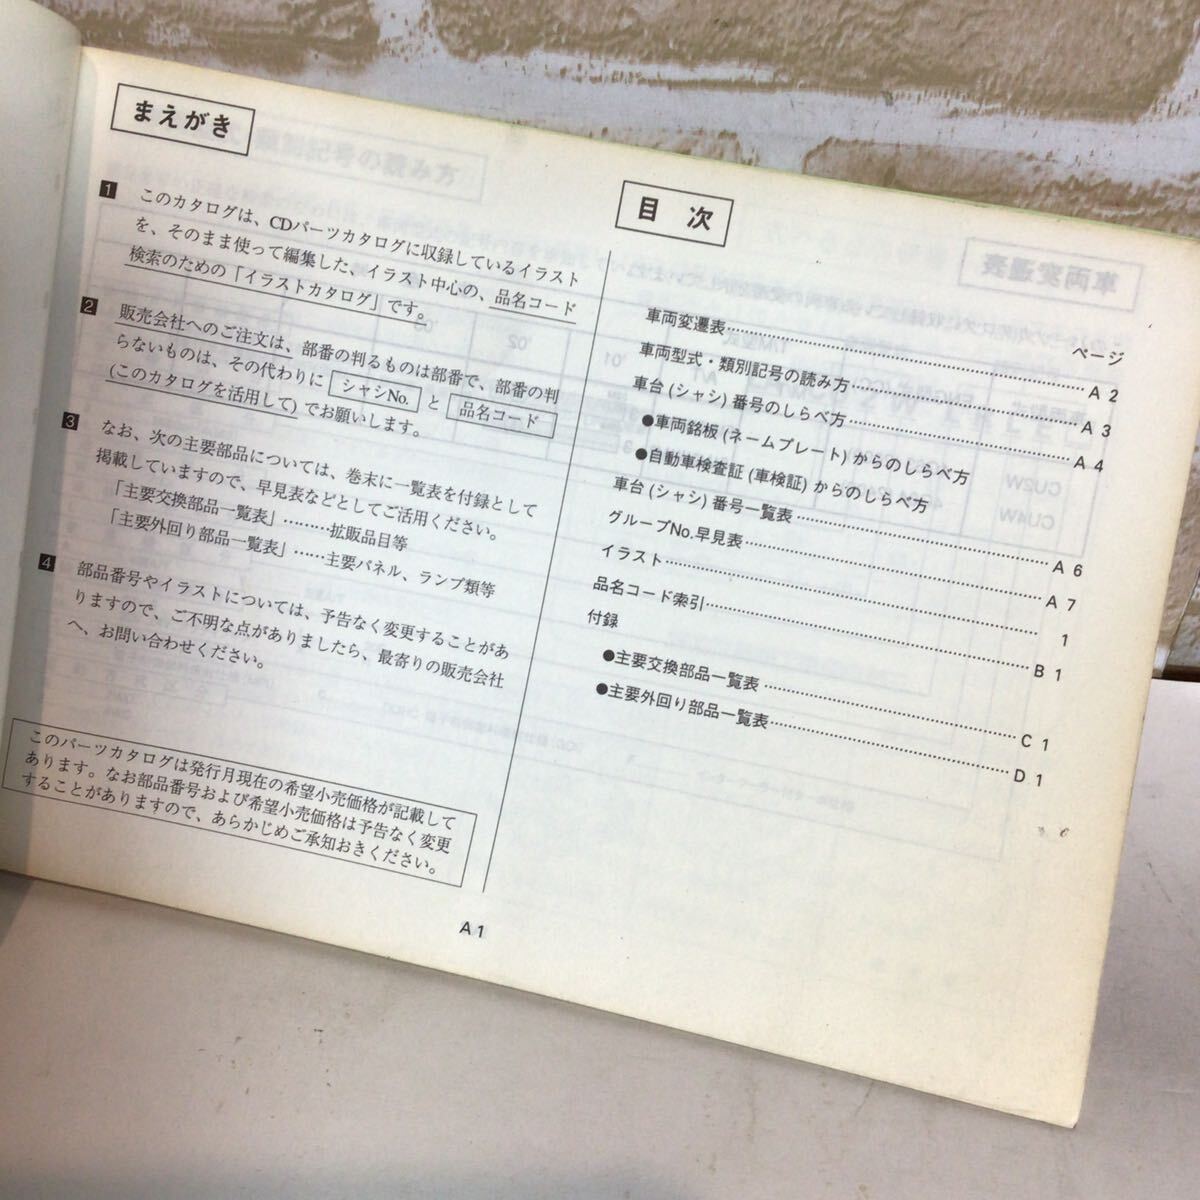 まえがき
1 このカタログは、CDパーツカタログに収録しているイラスト
を、そのまま使って編集した、イラスト中心の、品名コード
検索のための「イラストカタログ」です。
2 販売会社へのご注文は、部番の判るものは部番で、部番の判
らないものは、その代わりに シャシNo. と 品名コード
(このカタログを活用して)でお願いします。
3 なお、次の主要部品については、巻末に一覧表を付録として
掲載していますので、早見表などとしてご活用ください。
「主要交換部品一覧表」………拡販品目等
「主要外回り部品一覧表」……主要パネル、ランプ類等
4 部品番号やイラストについては、予告なく変更することがあ
りますので、ご不明な点がありましたら、最寄りの販売会社
へ、お問い合わせください。
このパーツカタログは発行月現在の希望小売価格が記載して
あります。なお部品番号および希望小売価格は予告なく変更
することがありますので、あらかじめご承知おきください。
目次
ページ
車両変遷表…………A 2
車両型式・類別記号の読み方…………A 3
車台(シャシ)番号のしらべ方…………A 4
●車両銘板(ネームプレート)からのしらべ方
●自動車検査証(車検証)からのしらべ方
車台(シャシ)番号一覧表…………A 6
グループNo.早見表…………A 7
イラスト…………1
品名コード索引…………B 1
付録
●主要交換部品一覧表…………C 1
●主要外回り部品一覧表…………D 1
A 1